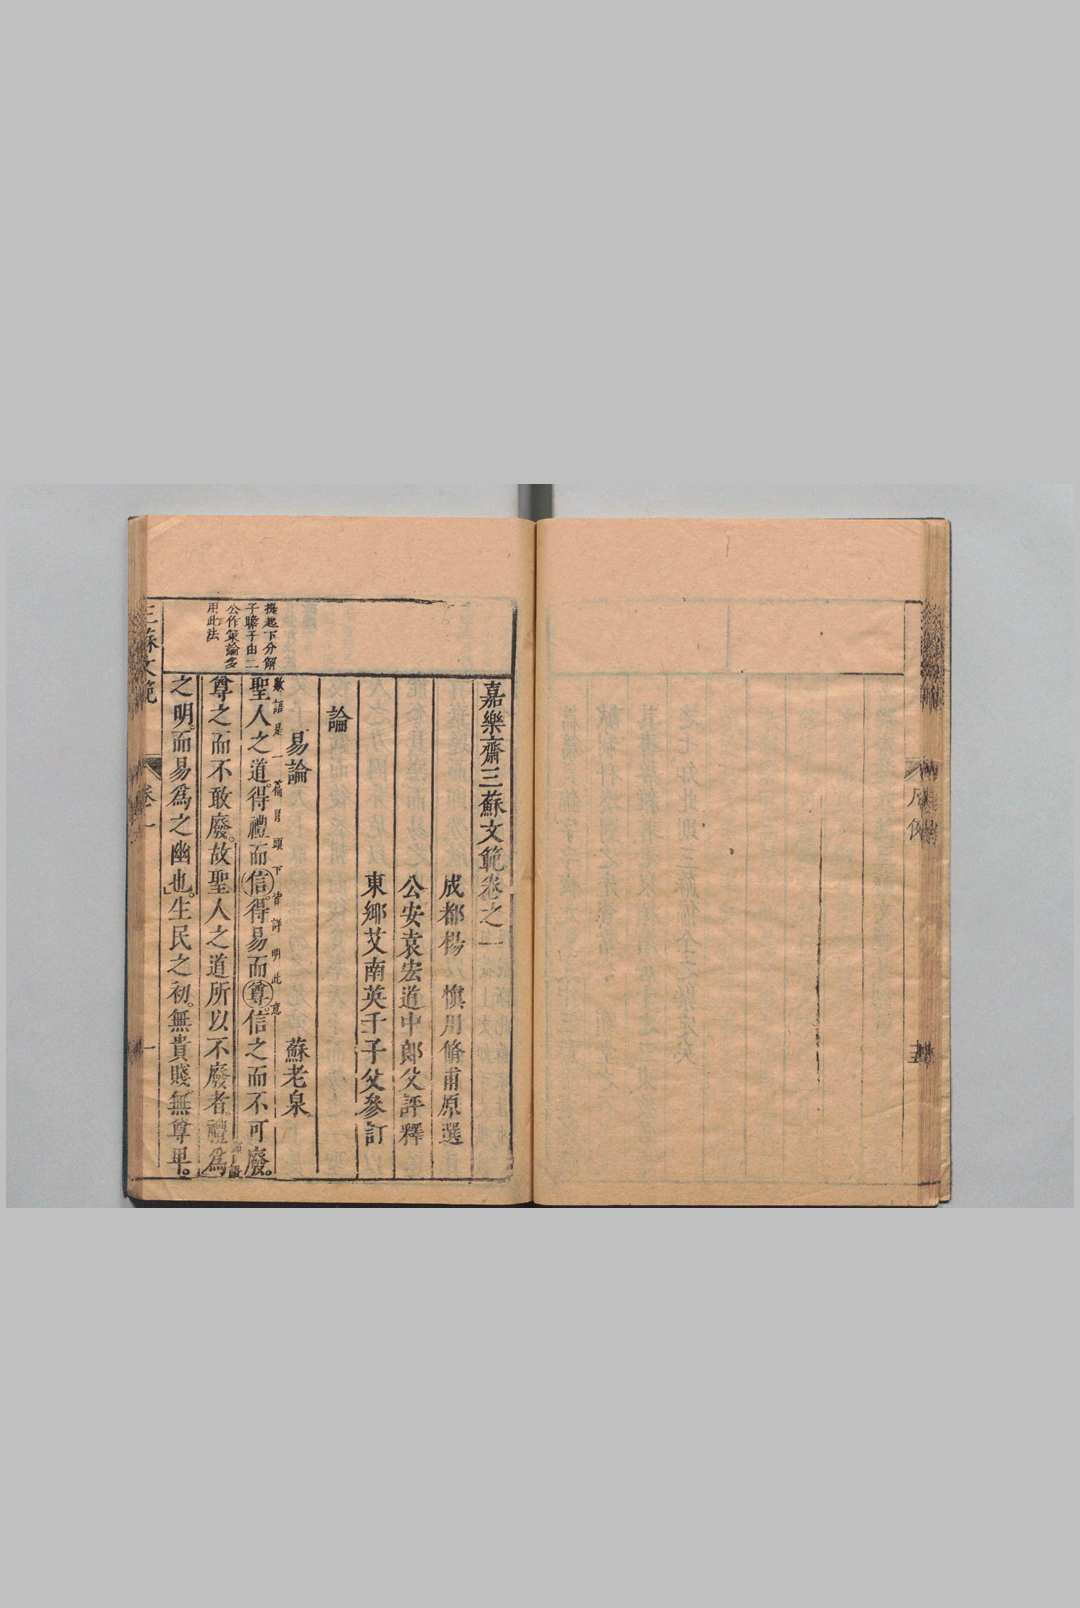 嘉樂齋三蘇文範卷之一
成都楊慎用脩甫原選
公安袁宏道中郎父評釋
東鄉艾南英千子父參訂
論
易論
蘇老泉
數語是一篇目頭下皆詳明此意
聖人之道。得禮而信。得易而尊。信之而不可廢。
尊之而不敢廢。故聖人之道所以不廢者。禮為
之明。而易為之幽也。生民之初。無貴賤。無尊卑。
提起下分解
子瞻子由二
公作策論多
用此法
三蘇文範
卷一
一
凡例